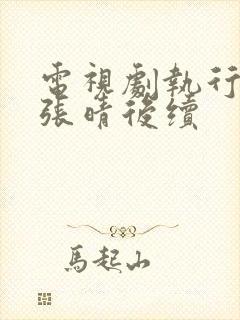 電視劇執行
張晴後續
馬起山